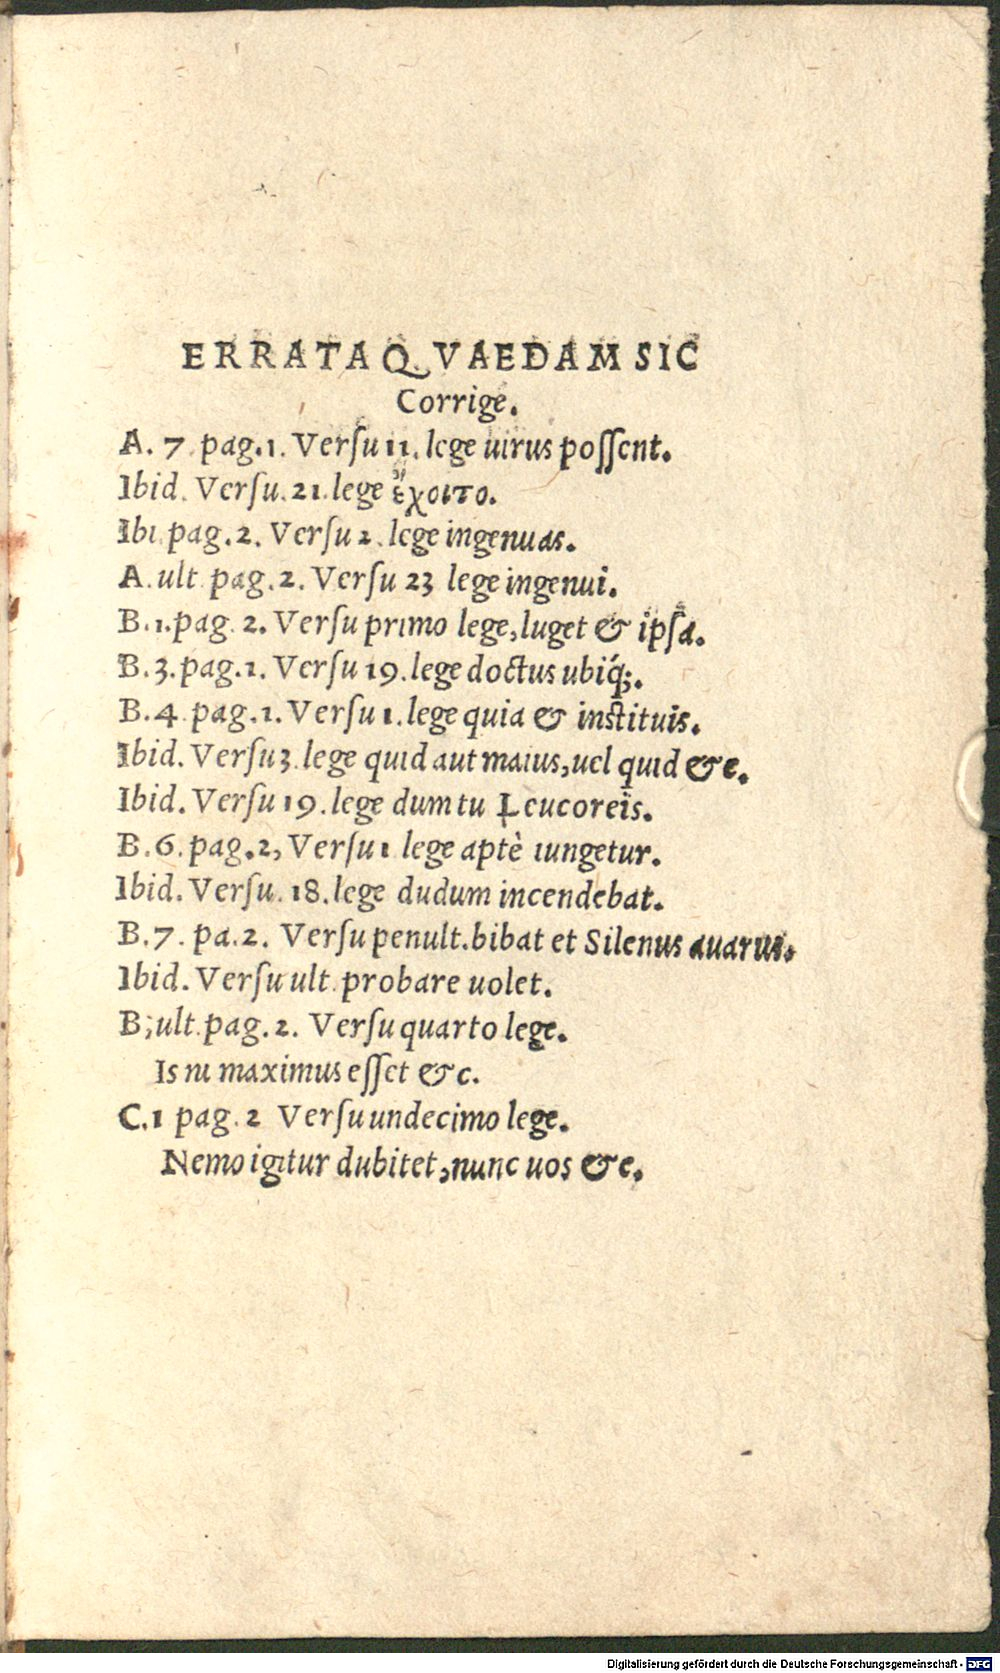 ERRATA QVAEDAM SIC
Corrige.
A. 7. pag. 1. Verſu 11. lege uirus poſſent.
Ibid. Verſu. 21. lege ἔχοιτο.
Ibi. pag. 2. Verſu 2. lege ingenuas.
A. ult. pag. 2. Verſu 23 lege ingenui.
B. 1. pag. 2. Verſu primo lege, luget & ipſa.
B. 3. pag. 1. Verſu 19. lege doctus ubiq́;.
B. 4. pag. 1. Verſu 1. lege quia & inſtituis.
Ibid. Verſu 3. lege quid aut maius, uel quid &c.
Ibid. Verſu 19. lege dum tu Leucoreis.
B. 6. pag. 2, Verſu 1 lege aptè iungetur.
Ibid. Verſu. 18. lege dudum incendebat.
B. 7. pa. 2. Verſu penult. bibat et Silenus auarus.
Ibid. Verſu ult. probare uolet.
B; ult. pag. 2. Verſu quarto lege.
Is ni maximus eſſet &c.
C. 1 pag. 2 Verſu undecimo lege.
Nemo igitur dubitet, nunc uos &c.
Digitalisierung gefördert durch die Deutsche Forschungsgemeinschaft - DFG